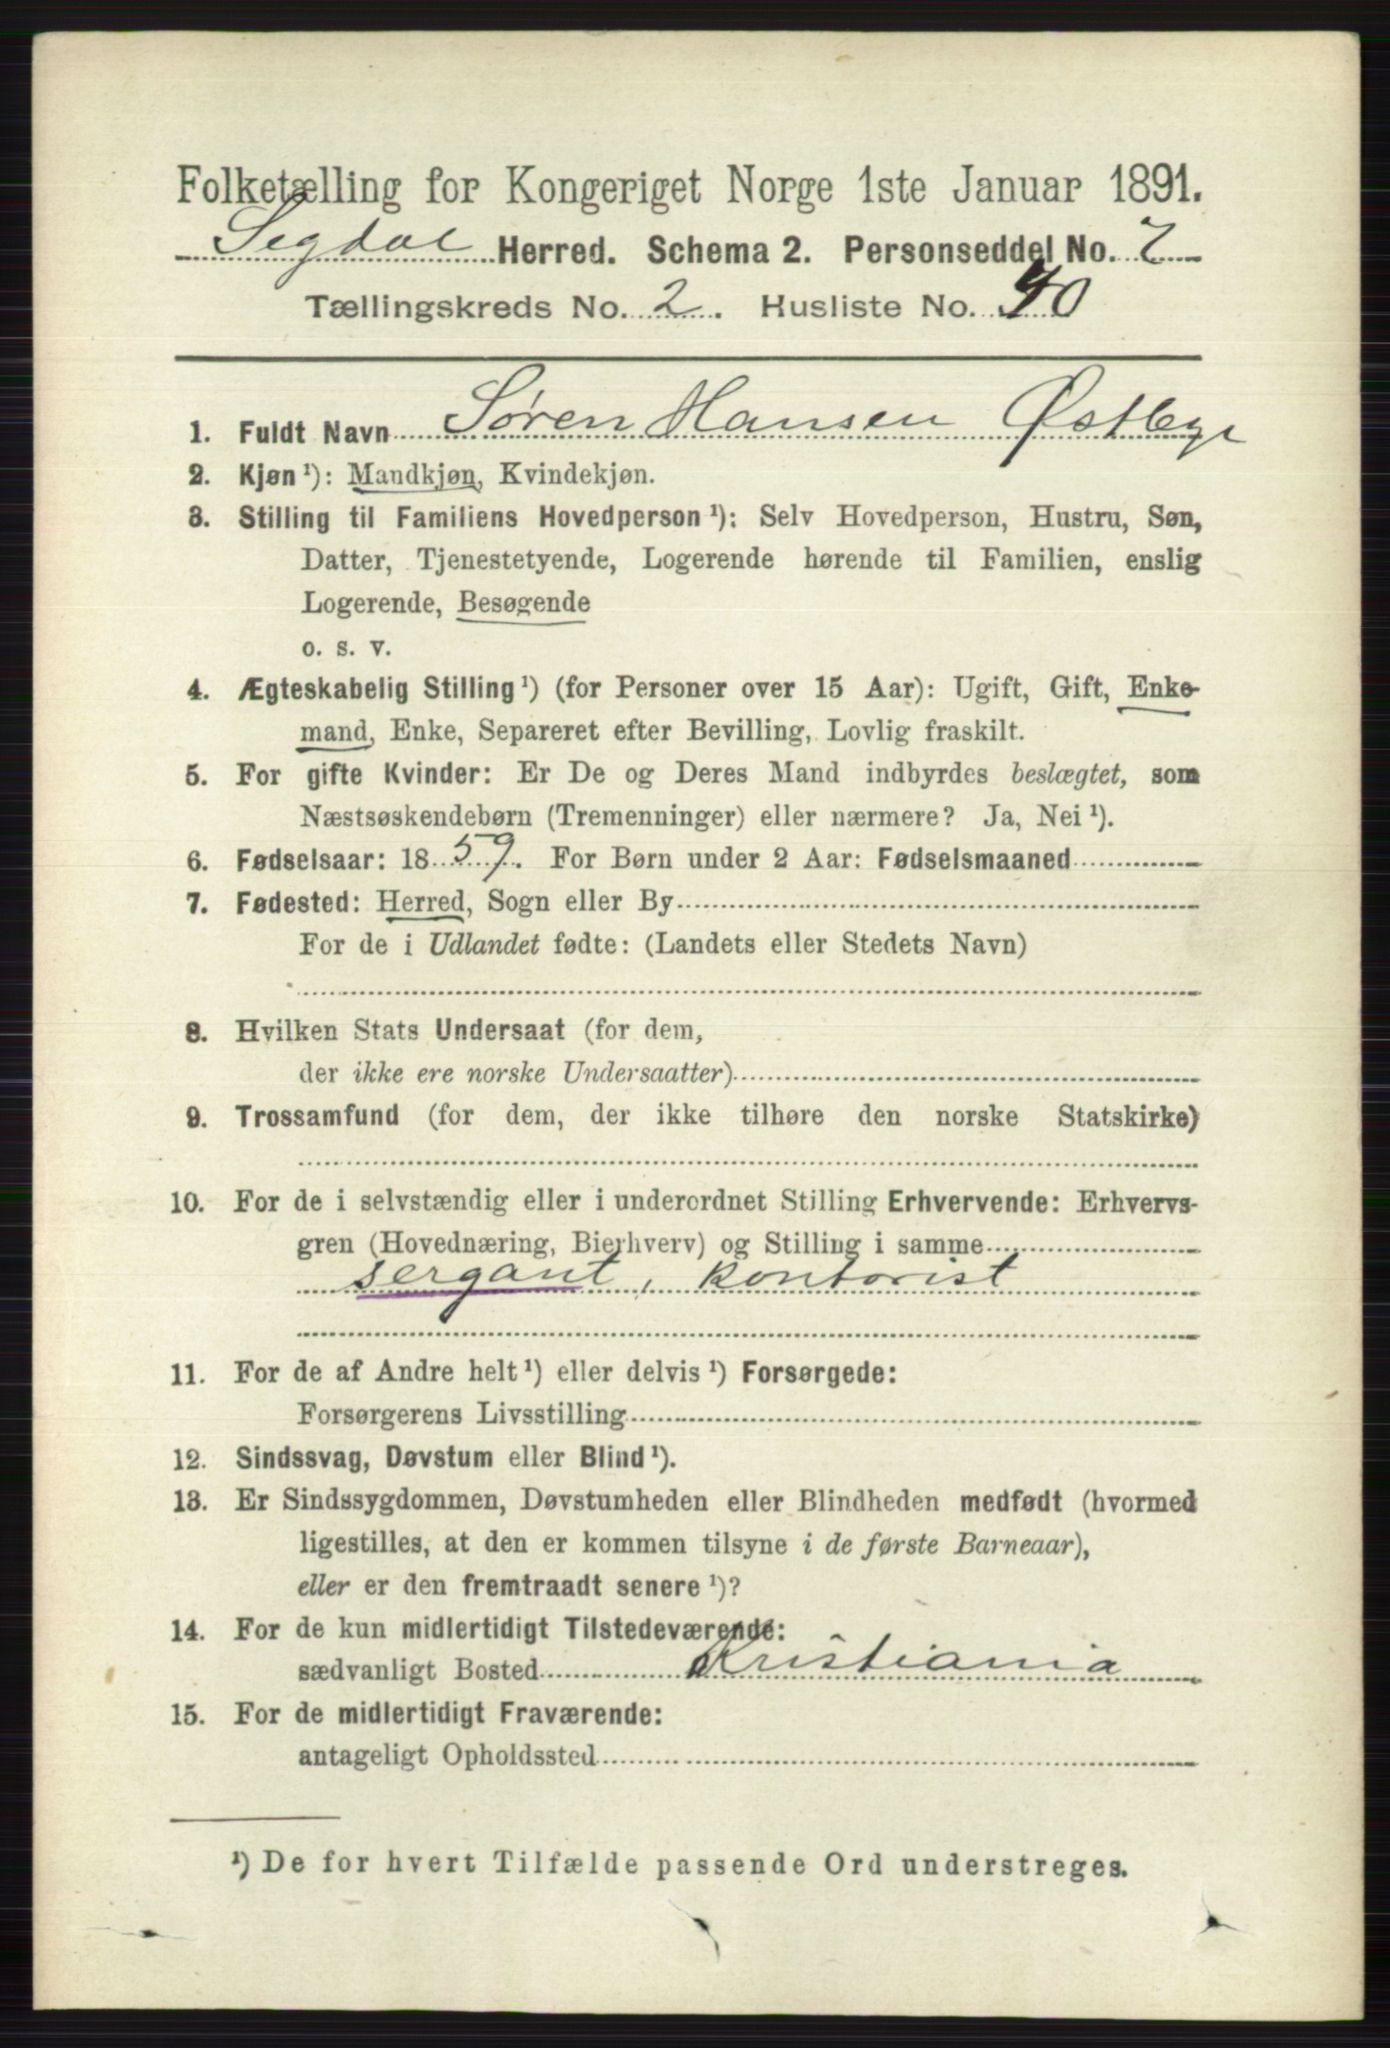 Folketælling for Kongeriget Norge 1ste Januar 1891.
Segdal Herred. Schema 2. Personseddel No. 7
Tællingskreds No. 2. Husliste No. 40
1. Fuldt Navn Søren Hansen Østbye
2. Kjøn¹): Mandkjøn, Kvindekjøn.
3. Stilling til Familiens Hovedperson¹): Selv Hovedperson, Hustru, Søn,
Datter, Tjenestetyende, Logerende hørende til Familien, enslig
Logerende, Besøgende
o. s. v.
4. Ægteskabelig Stilling¹) (for Personer over 15 Aar): Ugift, Gift, Enke-
mand, Enke, Separeret efter Bevilling, Lovlig fraskilt.
5. For gifte Kvinder: Er De og Deres Mand indbyrdes beslægtet, som
Næstsøskendebørn (Tremenninger) eller nærmere? Ja, Nei¹).
6. Fødselsaar: 1859. For Børn under 2 Aar: Fødselsmaaned
7. Fødested: Herred, Sogn eller By
For de i Udlandet fødte: (Landets eller Stedets Navn)
8. Hvilken Stats Undersaat (for dem,
der ikke ere norske Undersaatter)
9. Trossamfund (for dem, der ikke tilhøre den norske Statskirke)
10. For de i selvstændig eller i underordnet Stilling Erhvervende: Erhvervs-
gren (Hovednæring, Bierhverv) og Stilling i samme
sergant, kontorist
11. For de af Andre helt¹) eller delvis¹) Forsørgede:
Forsørgerens Livsstilling
12. Sindssvag, Døvstum eller Blind¹).
13. Er Sindssygdommen, Døvstumheden eller Blindheden medfødt (hvormed
ligestilles, at den er kommen tilsyne i de første Barneaar),
eller er den fremtraadt senere¹)?
14. For de kun midlertidigt Tilstedeværende:
sædvanligt Bosted Kristiania
15. For de midlertidigt Fraværende:
antageligt Opholdssted
¹) De for hvert Tilfælde passende Ord understreges.